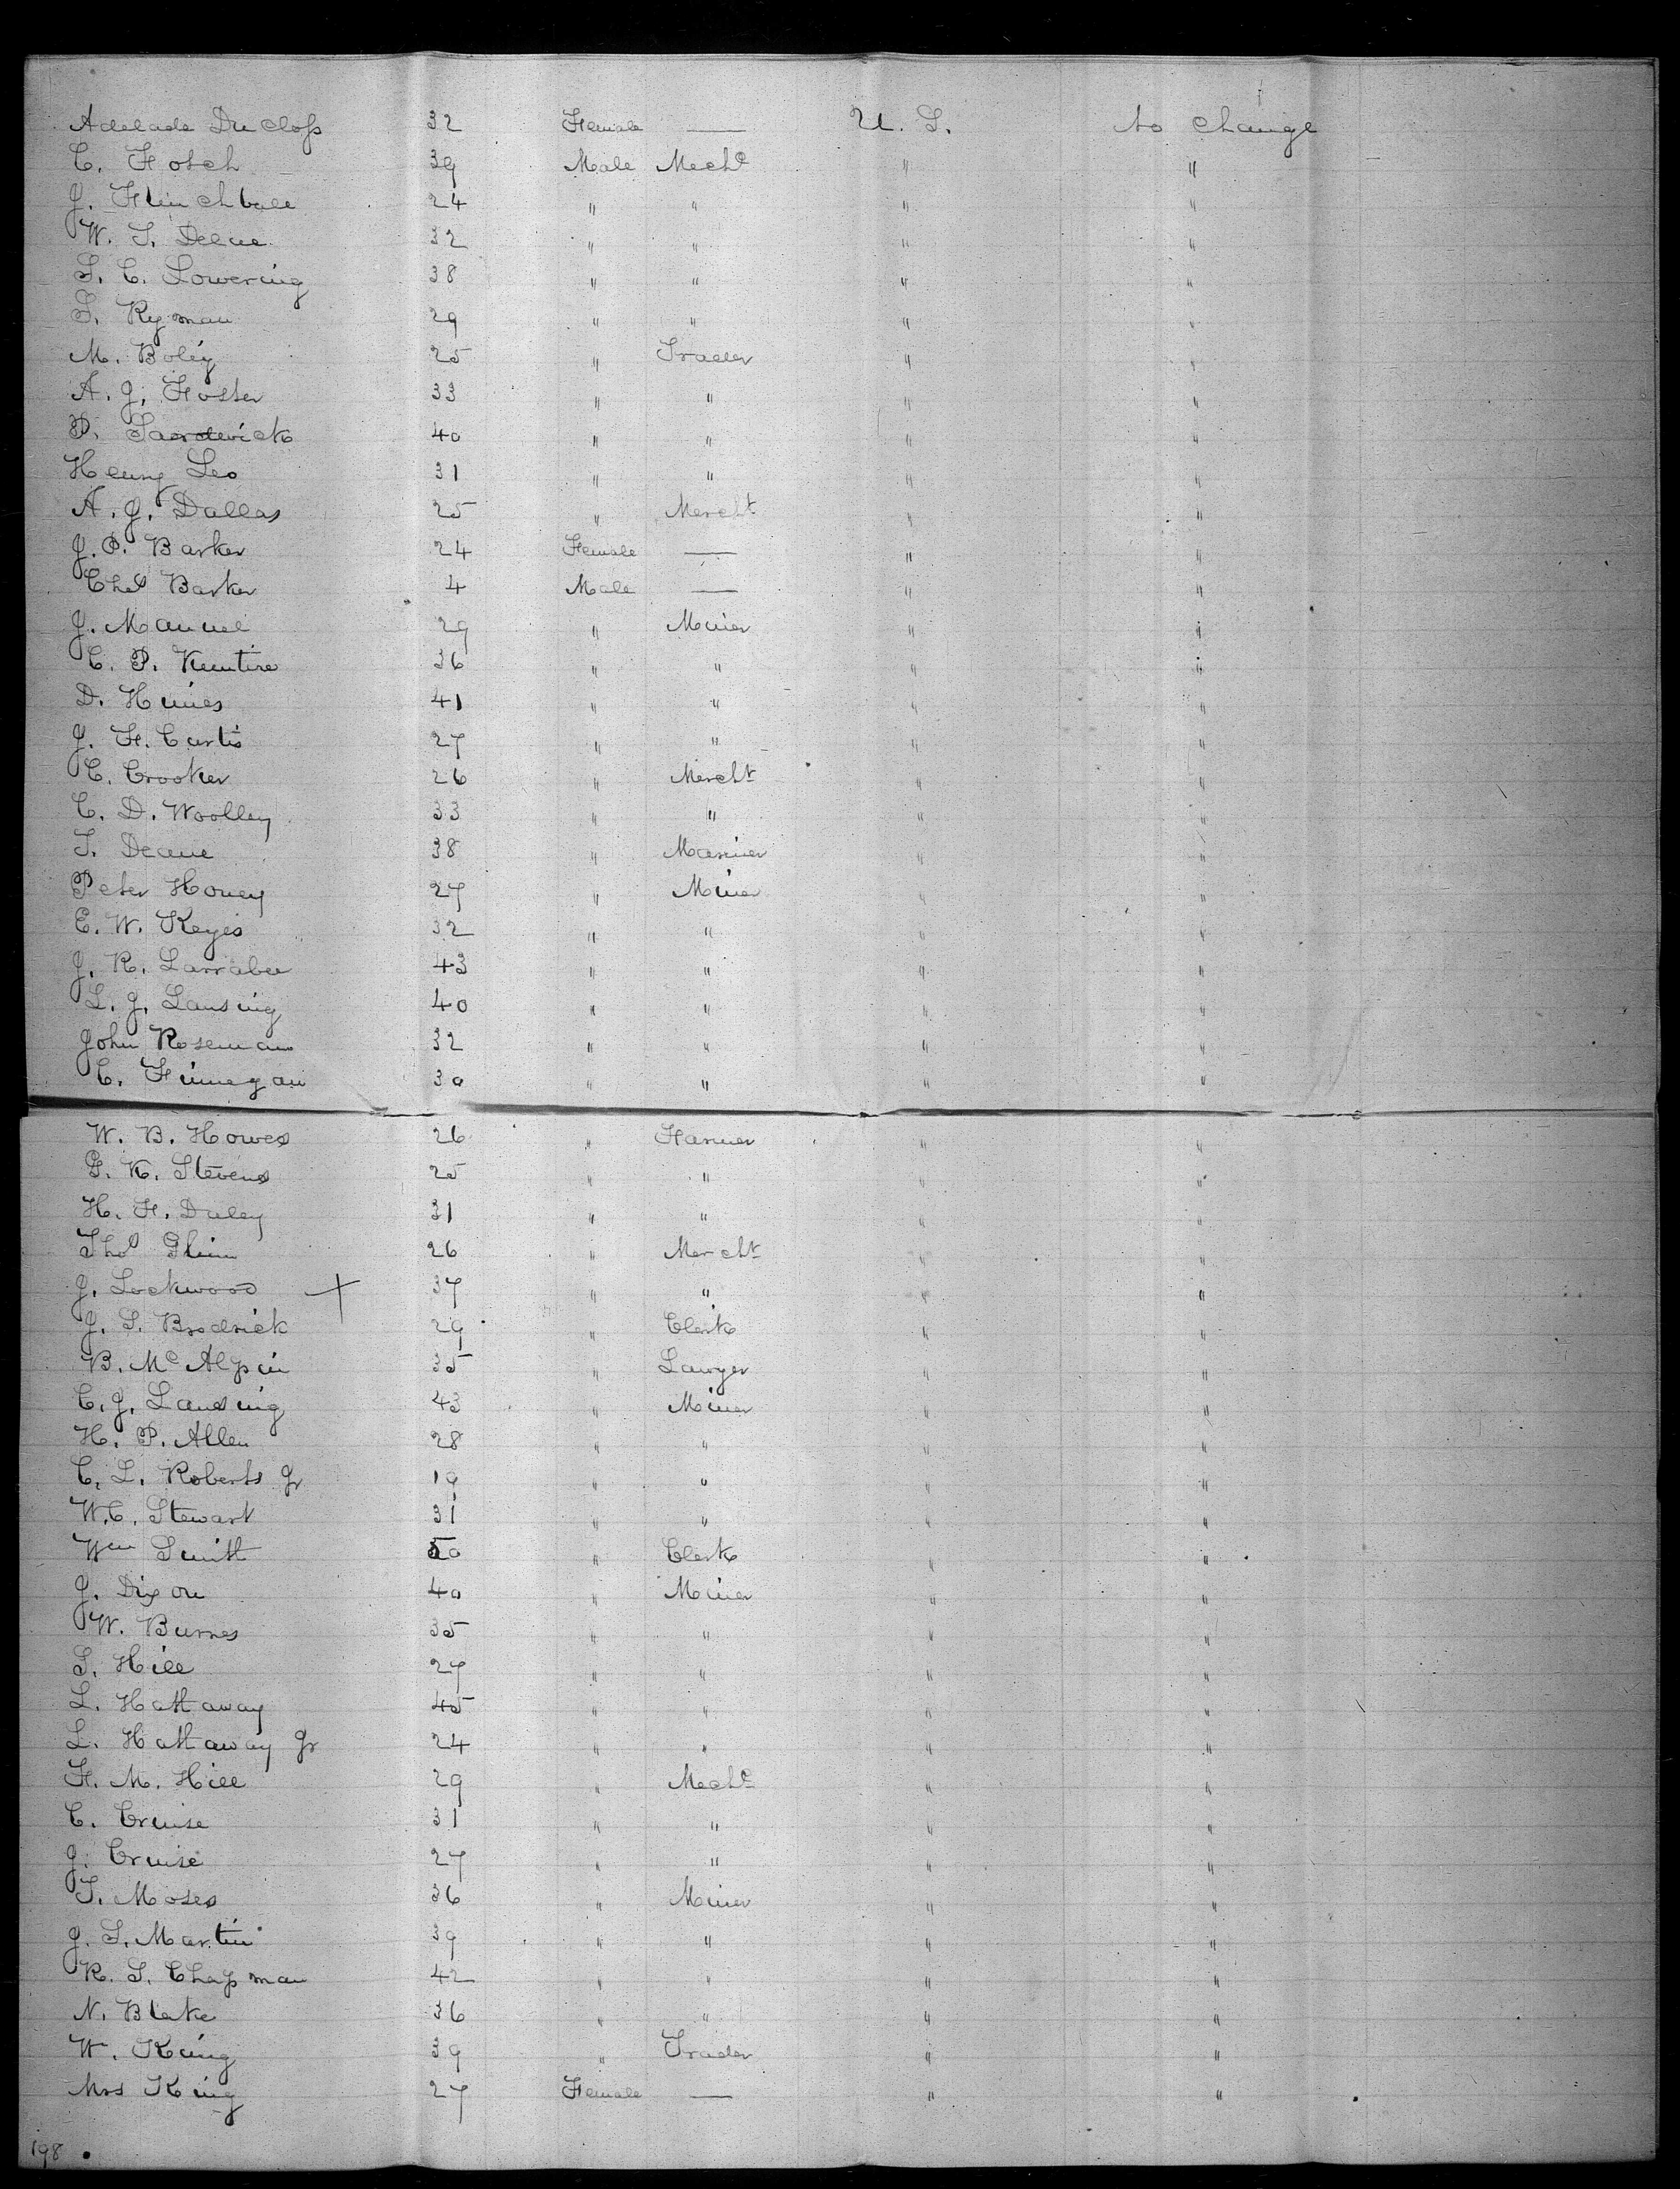 Adelade Ducloss 32 Female — U. S. No change
C. Fosch 39 Male Mechc " "
J. Flinchbale 24 " " " "
W. S. Delue 32 " " " "
S. C. Lowering 38 " " " "
S. Ryman 29 " " " "
M. Boley 25 " Trader " "
A. J. Foster 33 " " " "
P. 40 " " " "
Henry Leo 31 " " " "
A. J. Dallas 25 " Mercht " "
J. P. Barker 24 Female — " "
Chas Barker 4 Male — " "
J. Manuel 29 " Miner " "
C. P. 36 " " " "
D. Hines 41 " " " "
J. F. Curtis 27 " " " "
C. Crooker 26 " Mercht " "
C. D. Woolley 33 " " " "
T. Deane 38 " Mariner " "
Peter Honey 27 " Miner " "
E. W. Keyes 32 " " " "
J. R. Larrabee 43 " " " "
L. J. Lansing 40 " " " "
John Roseman 32 " " " "
C. Finnegan 30 " " " "
W. B. Howes 26 " Farmer " "
G. K. Stevens 25 " " " "
H. F. Daley 31 " " " "
Thos Glinn 26 " Mercht " "
J. Lockwood × 37 " " " "
J. S. Brodrick 29 " Clerk " "
B. Mc Alpin 35 " Lawyer " "
C. J. Lansing 43 " Miner " "
H. P. Allen 28 " " " "
C. L. Roberts Jr 19 " " " "
W. C. Stewart 31 " " " "
Wm Smith 50 " Clerk " "
J. Dixon 40 " Miner " "
W. Burnes 35 " " " "
S. Hill 27 " " " "
L. Hattaway 45 " " " "
L. Hattaway Jr 24 " " " "
F. M. Hill 29 " Mechc " "
C. Cruise 31 " " " "
J. Cruise 27 " " " "
T. Moses 36 " Miner " "
J. S. Martin 39 " " " "
R. S. Chapman 42 " " " "
N. Blake 36 " " " "
W. King 39 " Trader " "
Mrs King 27 Female — " "
198